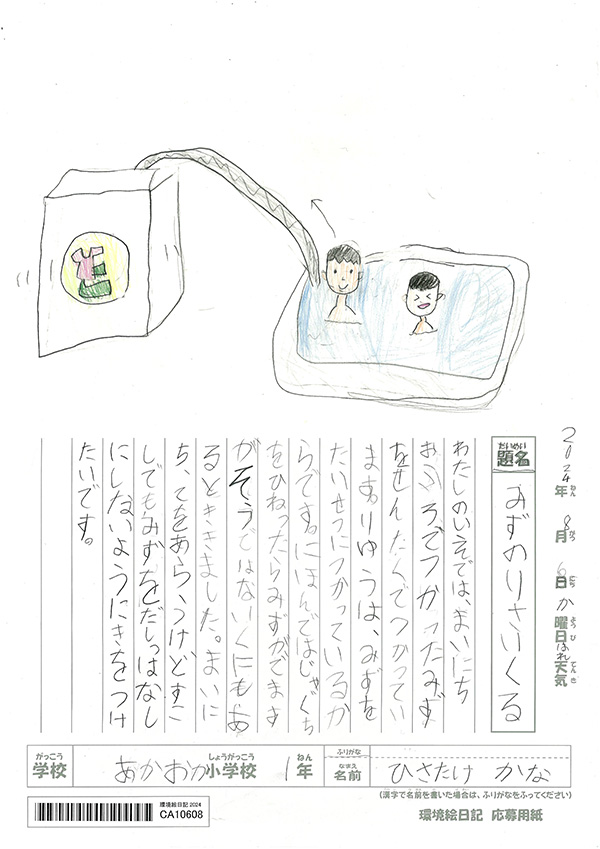 2024年ねん 8月がつ 6日にち か曜日ようび はれ天気てんき
題名だいめい みずのりさいくる
わたしのいえでは、まいにち
おふろでつかったみず
をせんたくでつかってい
ます。りゆうは、みずを
たいせつにつかっているか
らです。にほんではじゃぐち
をひねったらみずがでます
がそうではないくにもあ
るとききました。まいに
ち、てをあらうけどすこ
しでもみずをだしっぱなし
にしないようにきをつけ
たいです。
学校がっこう あかおか小学校しょうがっこう 1年ねん ふりがな 名前なまえ ひさたけ かな
(漢字で名前を書いた場合は、ふりがなをふってください)
環境絵日記 2024
CA10608
環境絵日記 応募用紙